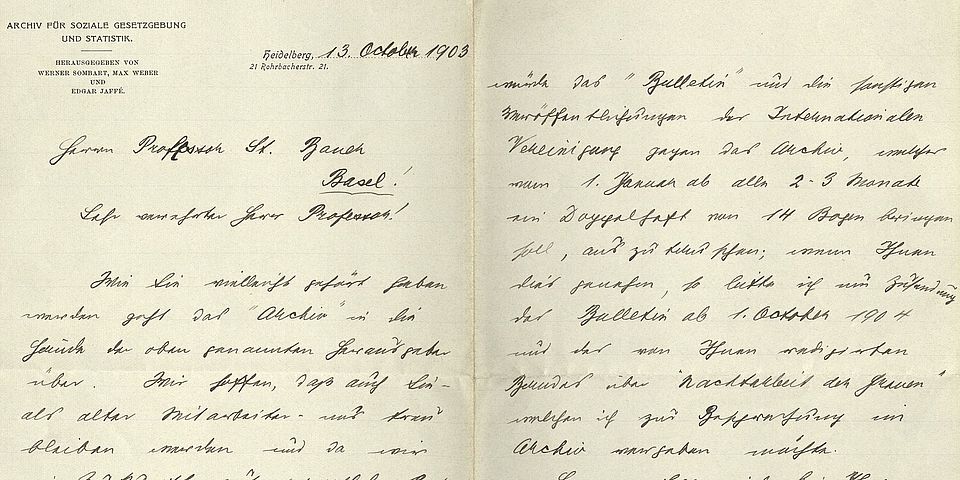 ARCHIV FÜR SOZIALE GESETZGEBUNG
UND STATISTIK.
HERAUSGEGEBEN VON
WERNER SOMBART, MAX WEBER
UND
EDGAR JAFFÉ.
Heidelberg, 13. October 1903
21 Rohrbacherstr. 21.
Herrn Professor St. Bauer
Basel!
Sehr verehrter Herr Professor!
Wie Sie vielleicht gehört haben
werden geht das "Archiv" in die
Hände der oben genannten Herausgeber
über. Wir hoffen, daß auch Sie
als alter Mitarbeiter uns treu
bleiben werden und da wir
würde das "Bulletin" und die sonstigen
Veröffentlichungen der Internationalen
Vereinigung gegen das Archiv, welches
vom 1. Januar ab alle 2-3 Monate
ein Doppelheft von 14 Bogen bringen
soll, auszutauschen; wenn Ihnen
dies genehm, so bitte ich um Zusendung
des Bulletin ab 1. October 1904
und des von Ihnen redigierten
Bandes über "Nachtarbeit der Frauen"
welchen ich zur Besprechung im
Archiv vergeben möchte.